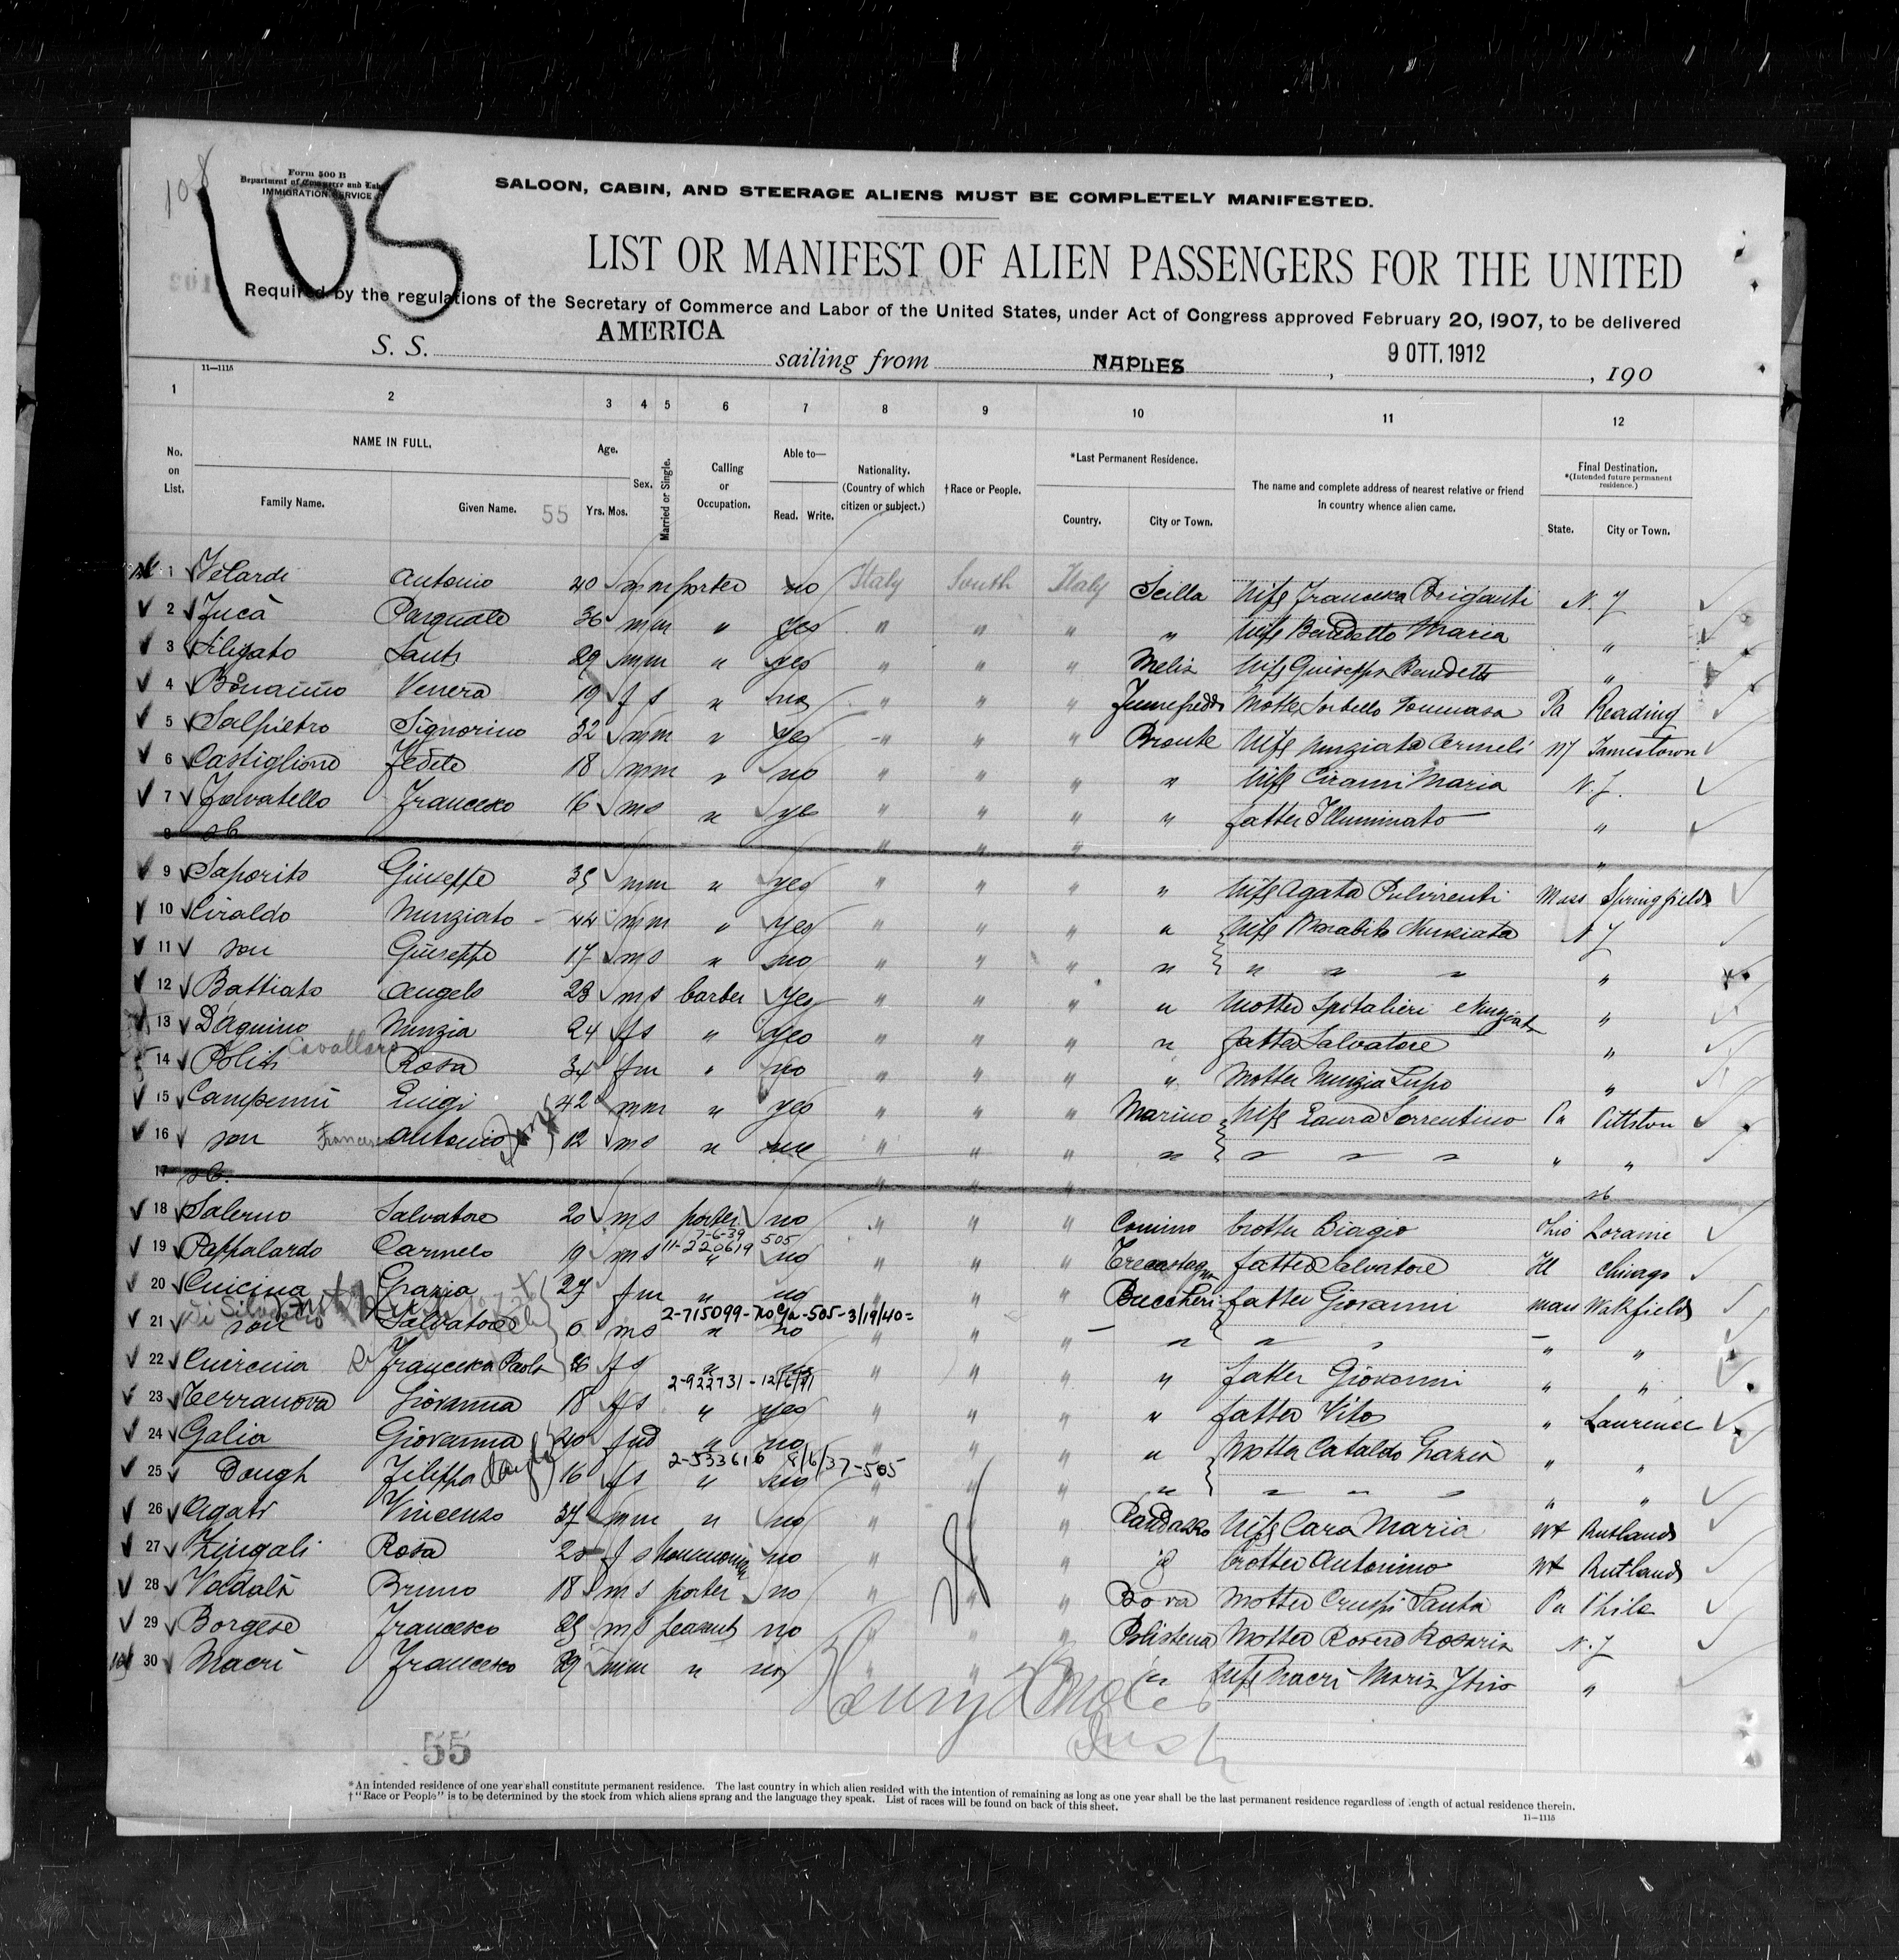 108
105
Form 500 B
Department of Commerce and Labor
IMMIGRATION SERVICE
SALOON, CABIN, AND STEERAGE ALIENS MUST BE COMPLETELY MANIFESTED.
LIST OR MANIFEST OF ALIEN PASSENGERS FOR THE UNITED
Required by the regulations of the Secretary of Commerce and Labor of the United States, under Act of Congress approved February 20, 1907, to be delivered
S. S. AMERICA sailing from NAPLES, 9 OTT. 1912, 190
11—1115
1 2 3 4 5 6 7 8 9 10 11 12
No. on List.
NAME IN FULL.
Family Name. Given Name. 55
Age.
Yrs. Mos.
Sex.
Married or Single.
Calling or Occupation.
Able to—
Read. Write.
Nationality. (Country of which citizen or subject.)
†Race or People.
*Last Permanent Residence.
Country. City or Town.
The name and complete address of nearest relative or friend in country whence alien came.
Final Destination.
*(Intended future permanent residence.)
State. City or Town.
1 Velardi Antonio 40 m m porter no Italy South Italy Scilla wife Francesca Briganti N. Y
2 Zucà Pasquale 36 m m " yes " " " " wife Benedetto Maria "
3 29 m m " yes " " " wife Giuseppa Benedetto "
4 Venera 19 f s " no " " " mother Sorbello Tommasa Pa Reading
5 Salpietro Signorino 32 m m " yes " " " Bronte wife Nunziata NY Jamestown
6 Castiglione 18 m m " no " " " " wife Maria N. Y.
7 Francesco 16 m s " yes " " " " father Illuminato "
8 sb " " " "
9 Saporito Giuseppe 35 m m " yes " " " " wife Agata Pulvirenti Mass Springfield
10 Ciraldo Nunziato 44 m m " yes " " " " wife Morabito Nunziata N Y
11 son Giuseppe 17 m s " no " " " " " " " "
12 Battiato Angelo 23 m s barber yes " " " " mother Spitalieri Nunziata "
13 D'Aquino Nunzia 24 f s " yes " " " " father Salvatore "
Cavallaro
14 Politi Rosa 34 f m " no " " " " mother Nunzia Lupo "
15 Campenni Luigi 42 m m " yes " " " Marino wife Laura Sorrentino Pa Pittston
16 son Antonio 12 m s " " " " " " " " " "
17 sb. " " " sb
18 Salerno Salvatore 20 m s porter no " " " Comino brother Biagio Ohio Loraine
7-6-39
11-220619 505
19 Pappalardo Carmelo 19 m s " no " " " Trecastagni father Salvatore Ill Chicago
20 Cuicina Grazia 27 f m " no " " " Buccheri father Giovanni Mass Wakfield
2-715099-No C/a-505-3/19/40=
21 son Salvatore 6 m s " no " " " " " " "
22 Francesca Paola 26 f s " " " " " father Giovanni " "
2-922731-12/6/41
23 Terranova Giovanna 18 f s " yes " " " " father Vito " Laurence
24 Galia Giovanna 40 f wd " no " " " " mother Cataldo Grazia " "
2-533616 8/6/37-505
25 Dough Filippa 16 f s " no " " " " " " " " "
26 Agati Vincenzo 37 m m " no " " " Randazzo wife Cara Maria Vt Rutland
27 Zingali Rosa 25 f s no " " " brother Antonino Vt Rutland
28 Vadalà Bruno 18 m s porter no " " " Bova mother Crupi Santa Pa Phila
29 Borgese Francesco 25 m s peasant no " " " Polistena mother Rosaria N. Y
30 Macri Francesco 29 m m " no " " " " wife Macri Maria "
55
*An intended residence of one year shall constitute permanent residence. The last country in which alien resided with the intention of remaining as long as one year shall be the last permanent residence regardless of length of actual residence therein.
†"Race or People" is to be determined by the stock from which aliens sprang and the language they speak. List of races will be found on back of this sheet.
11—1115